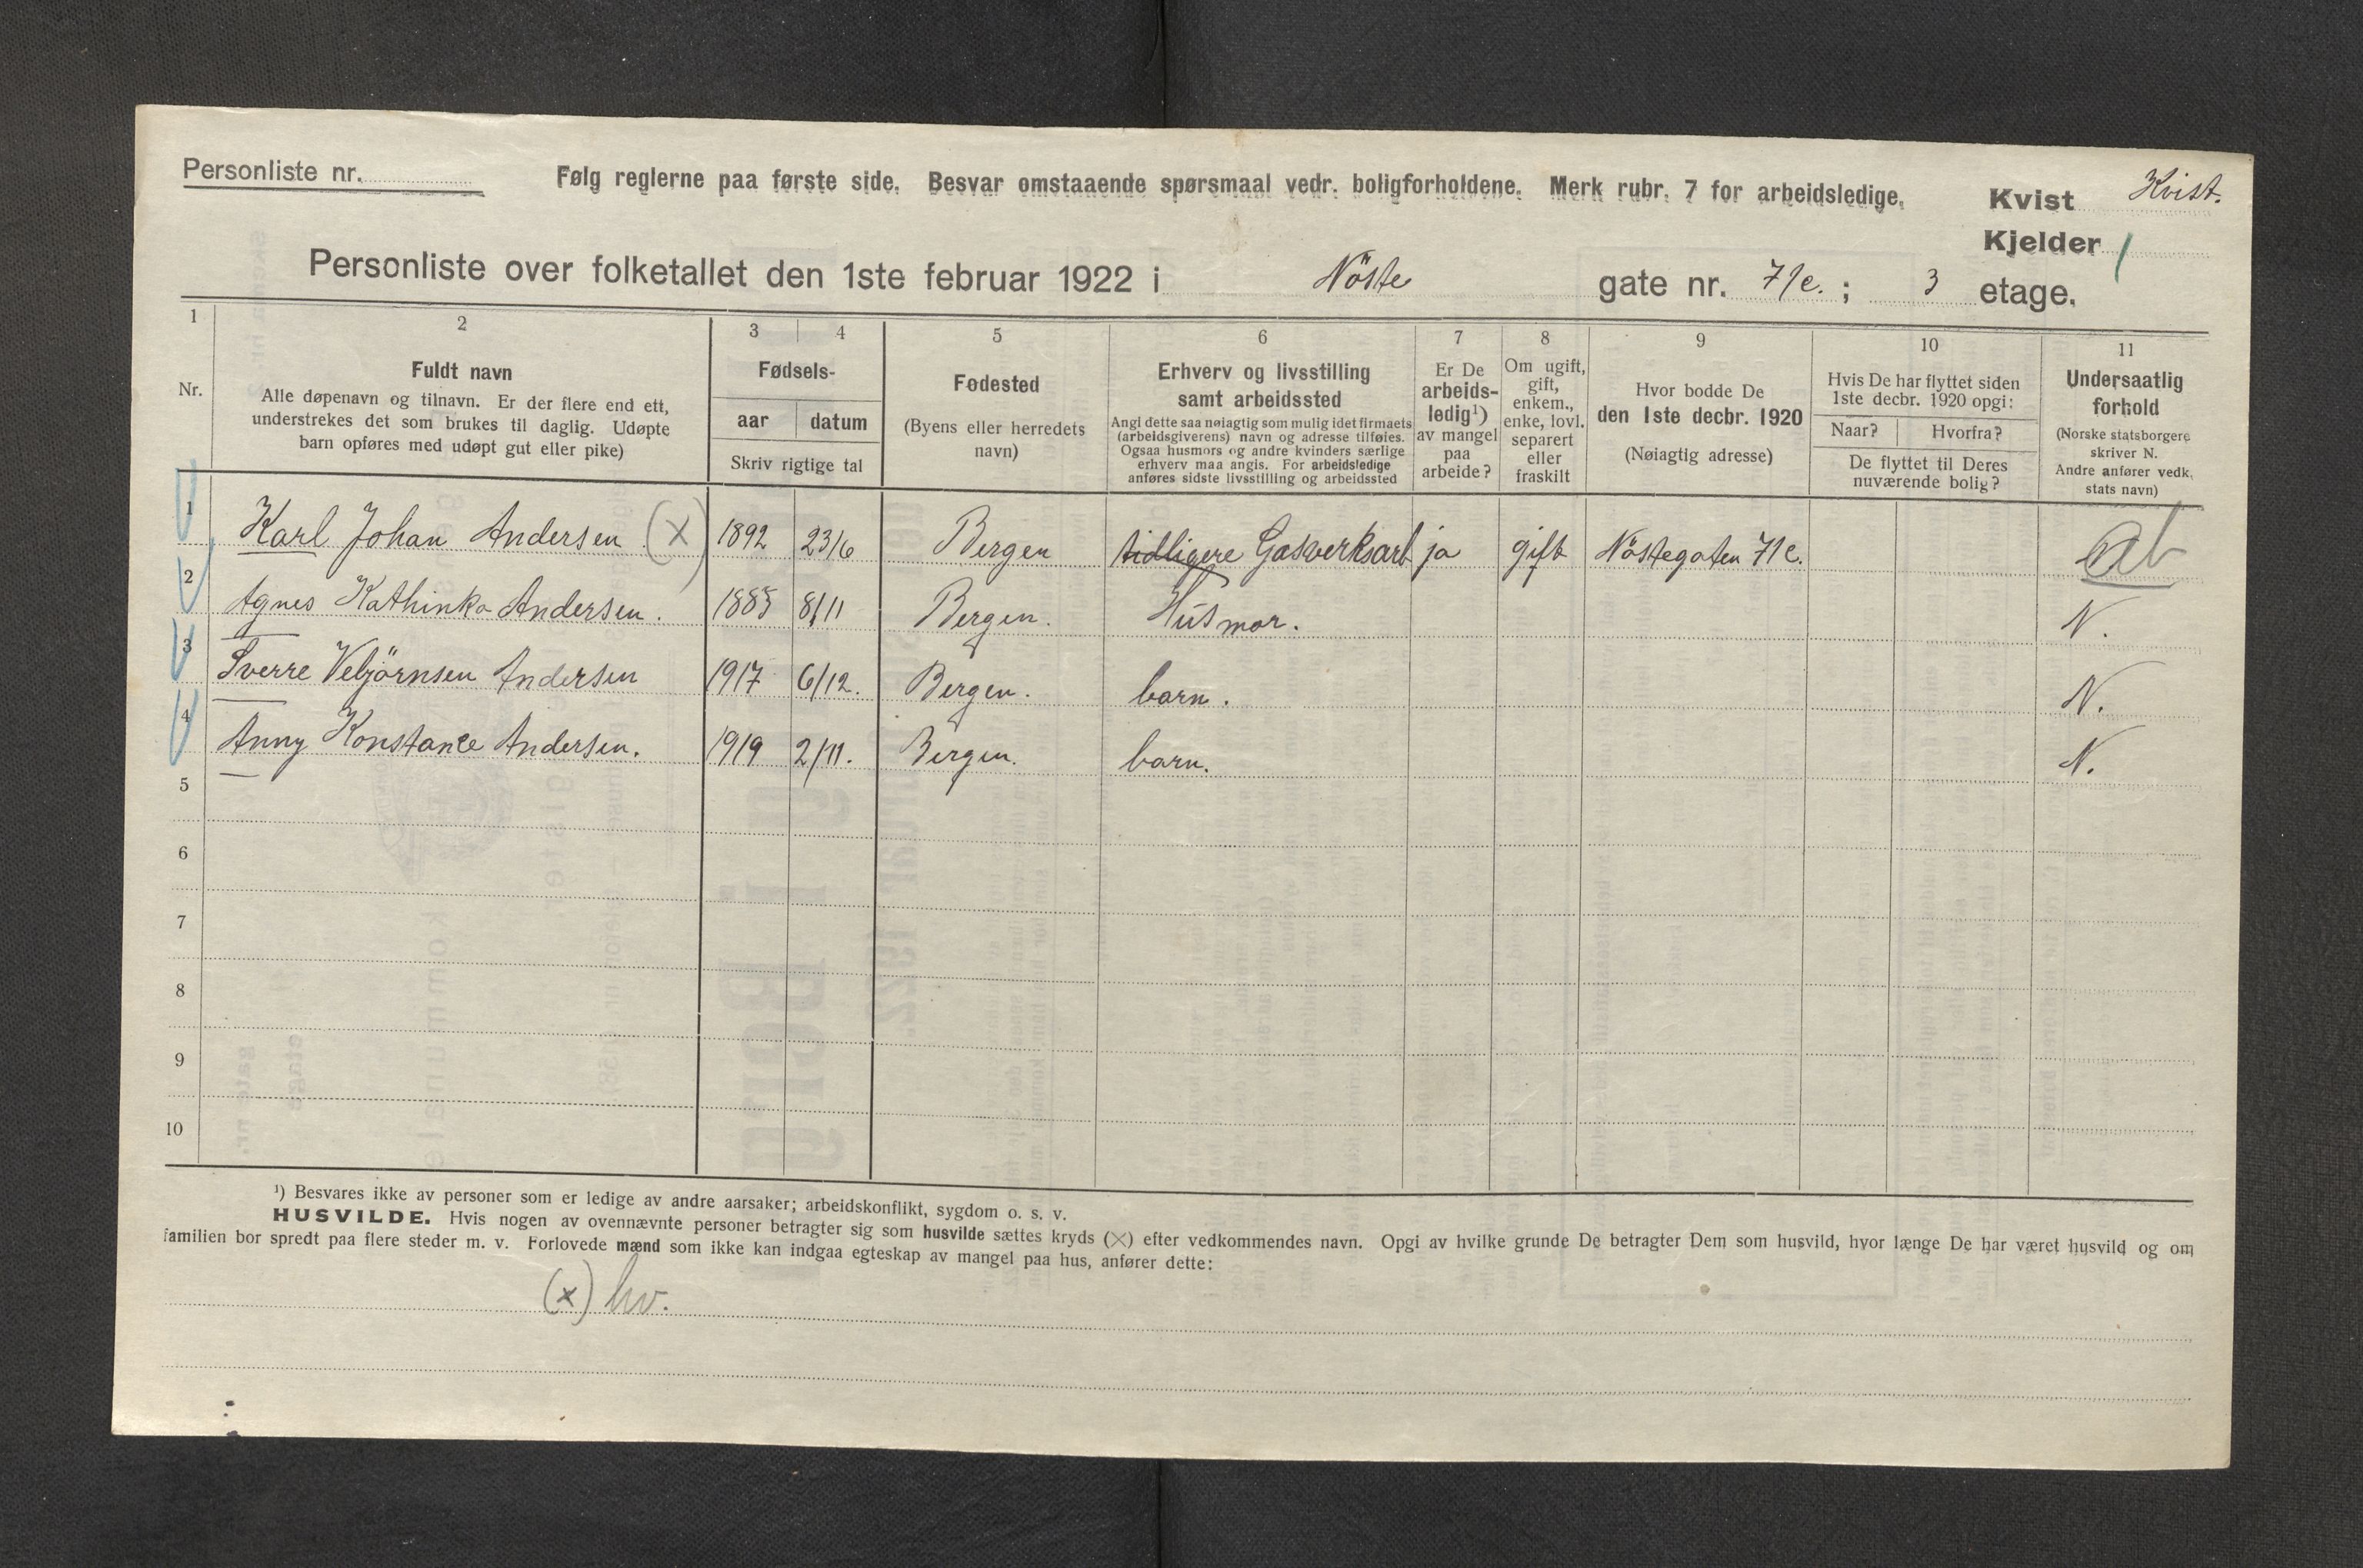 Personliste nr.
Følg reglerne paa første side. Besvar omstaaende spørsmaal vedr. boligforholdene. Merk rubr. 7 for arbeidsledige.
Kvist Kvist.
Kjelder
Personliste over folketallet den 1ste februar 1922 i Nöste gate nr. 71e. ; 3 etage.
1 2 3 4 5 6 7 8 9 10 11
Nr.
Fuldt navn
Alle døpenavn og tilnavn. Er der flere end ett,
understrekes det som brukes til daglig. Udøpte
barn opføres med udøpt gut eller pike)
Fødsels-
aar datum
Skriv rigtige tal
Fødested
(Byens eller herredets
navn)
Erhverv og livsstilling
samt arbeidssted
Angi dette saa nøiagtig som mulig idet firmaets
(arbeidsgiverens) navn og adresse tilføies.
Ogsaa husmors og andre kvinders særlige
erhverv maa angis. For arbeidsledige
anføres sidste livsstilling og arbeidssted
Er De
arbeids-
ledig¹)
av mangel
paa
arbeide?
Om ugift,
gift,
enkem.,
enke, lovl.
separert
eller
fraskilt
Hvor bodde De
den 1ste decbr. 1920
(Nøiagtig adresse)
Hvis De har flyttet siden
1ste decbr. 1920 opgi:
Naar? Hvorfra?
De flyttet til Deres
nuværende bolig?
Undersaatlig
forhold
(Norske statsborgere
skriver N.
Andre anfører vedk.
stats navn)
1 Karl Johan Andersen (x) 1892 23/6 Bergen tidligere Gasverksarb ja gift Nöstegaten 71e.
2 Agnes Kathinka Andersen. 1885 8/11 Bergen. Husmor. N.
3 Sverre Vebjörnsen Andersen 1917 6/12. Bergen. barn. N.
4 Anny Konstance Andersen. 1919 2/11. Bergen. barn. N.
5
6
7
8
9
10
¹) Besvares ikke av personer som er ledige av andre aarsaker; arbeidskonflikt, sygdom o. s. v.
HUSVILDE. Hvis nogen av ovennævnte personer betragter sig som husvilde sættes kryds (×) efter vedkommendes navn. Opgi av hvilke grunde De betragter Dem som husvild, hvor længe De har været husvild og om
familien bor spredt paa flere steder m. v. Forlovede mænd som ikke kan indgaa egteskap av mangel paa hus, anfører dette:
(x) hv.